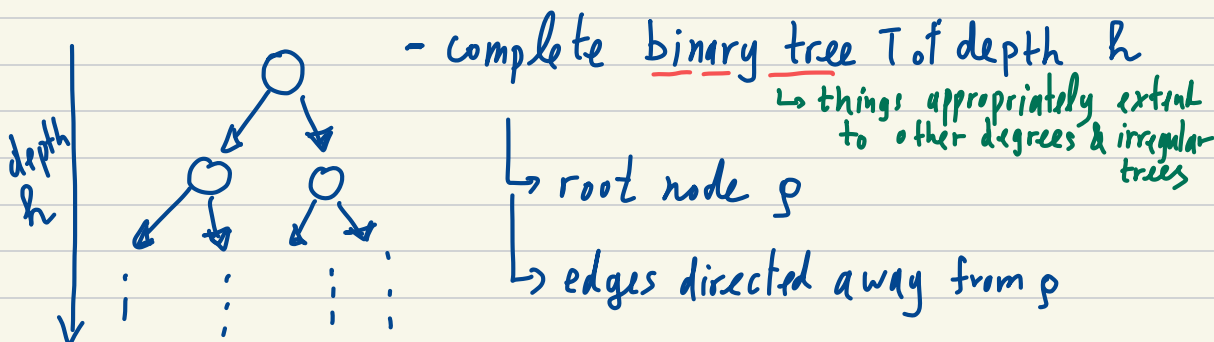 - complete binary tree T of depth h
↳ things appropriately extent
to other degrees & irregular
trees
depth
h
↳ root node ρ
↳ edges directed away from ρ